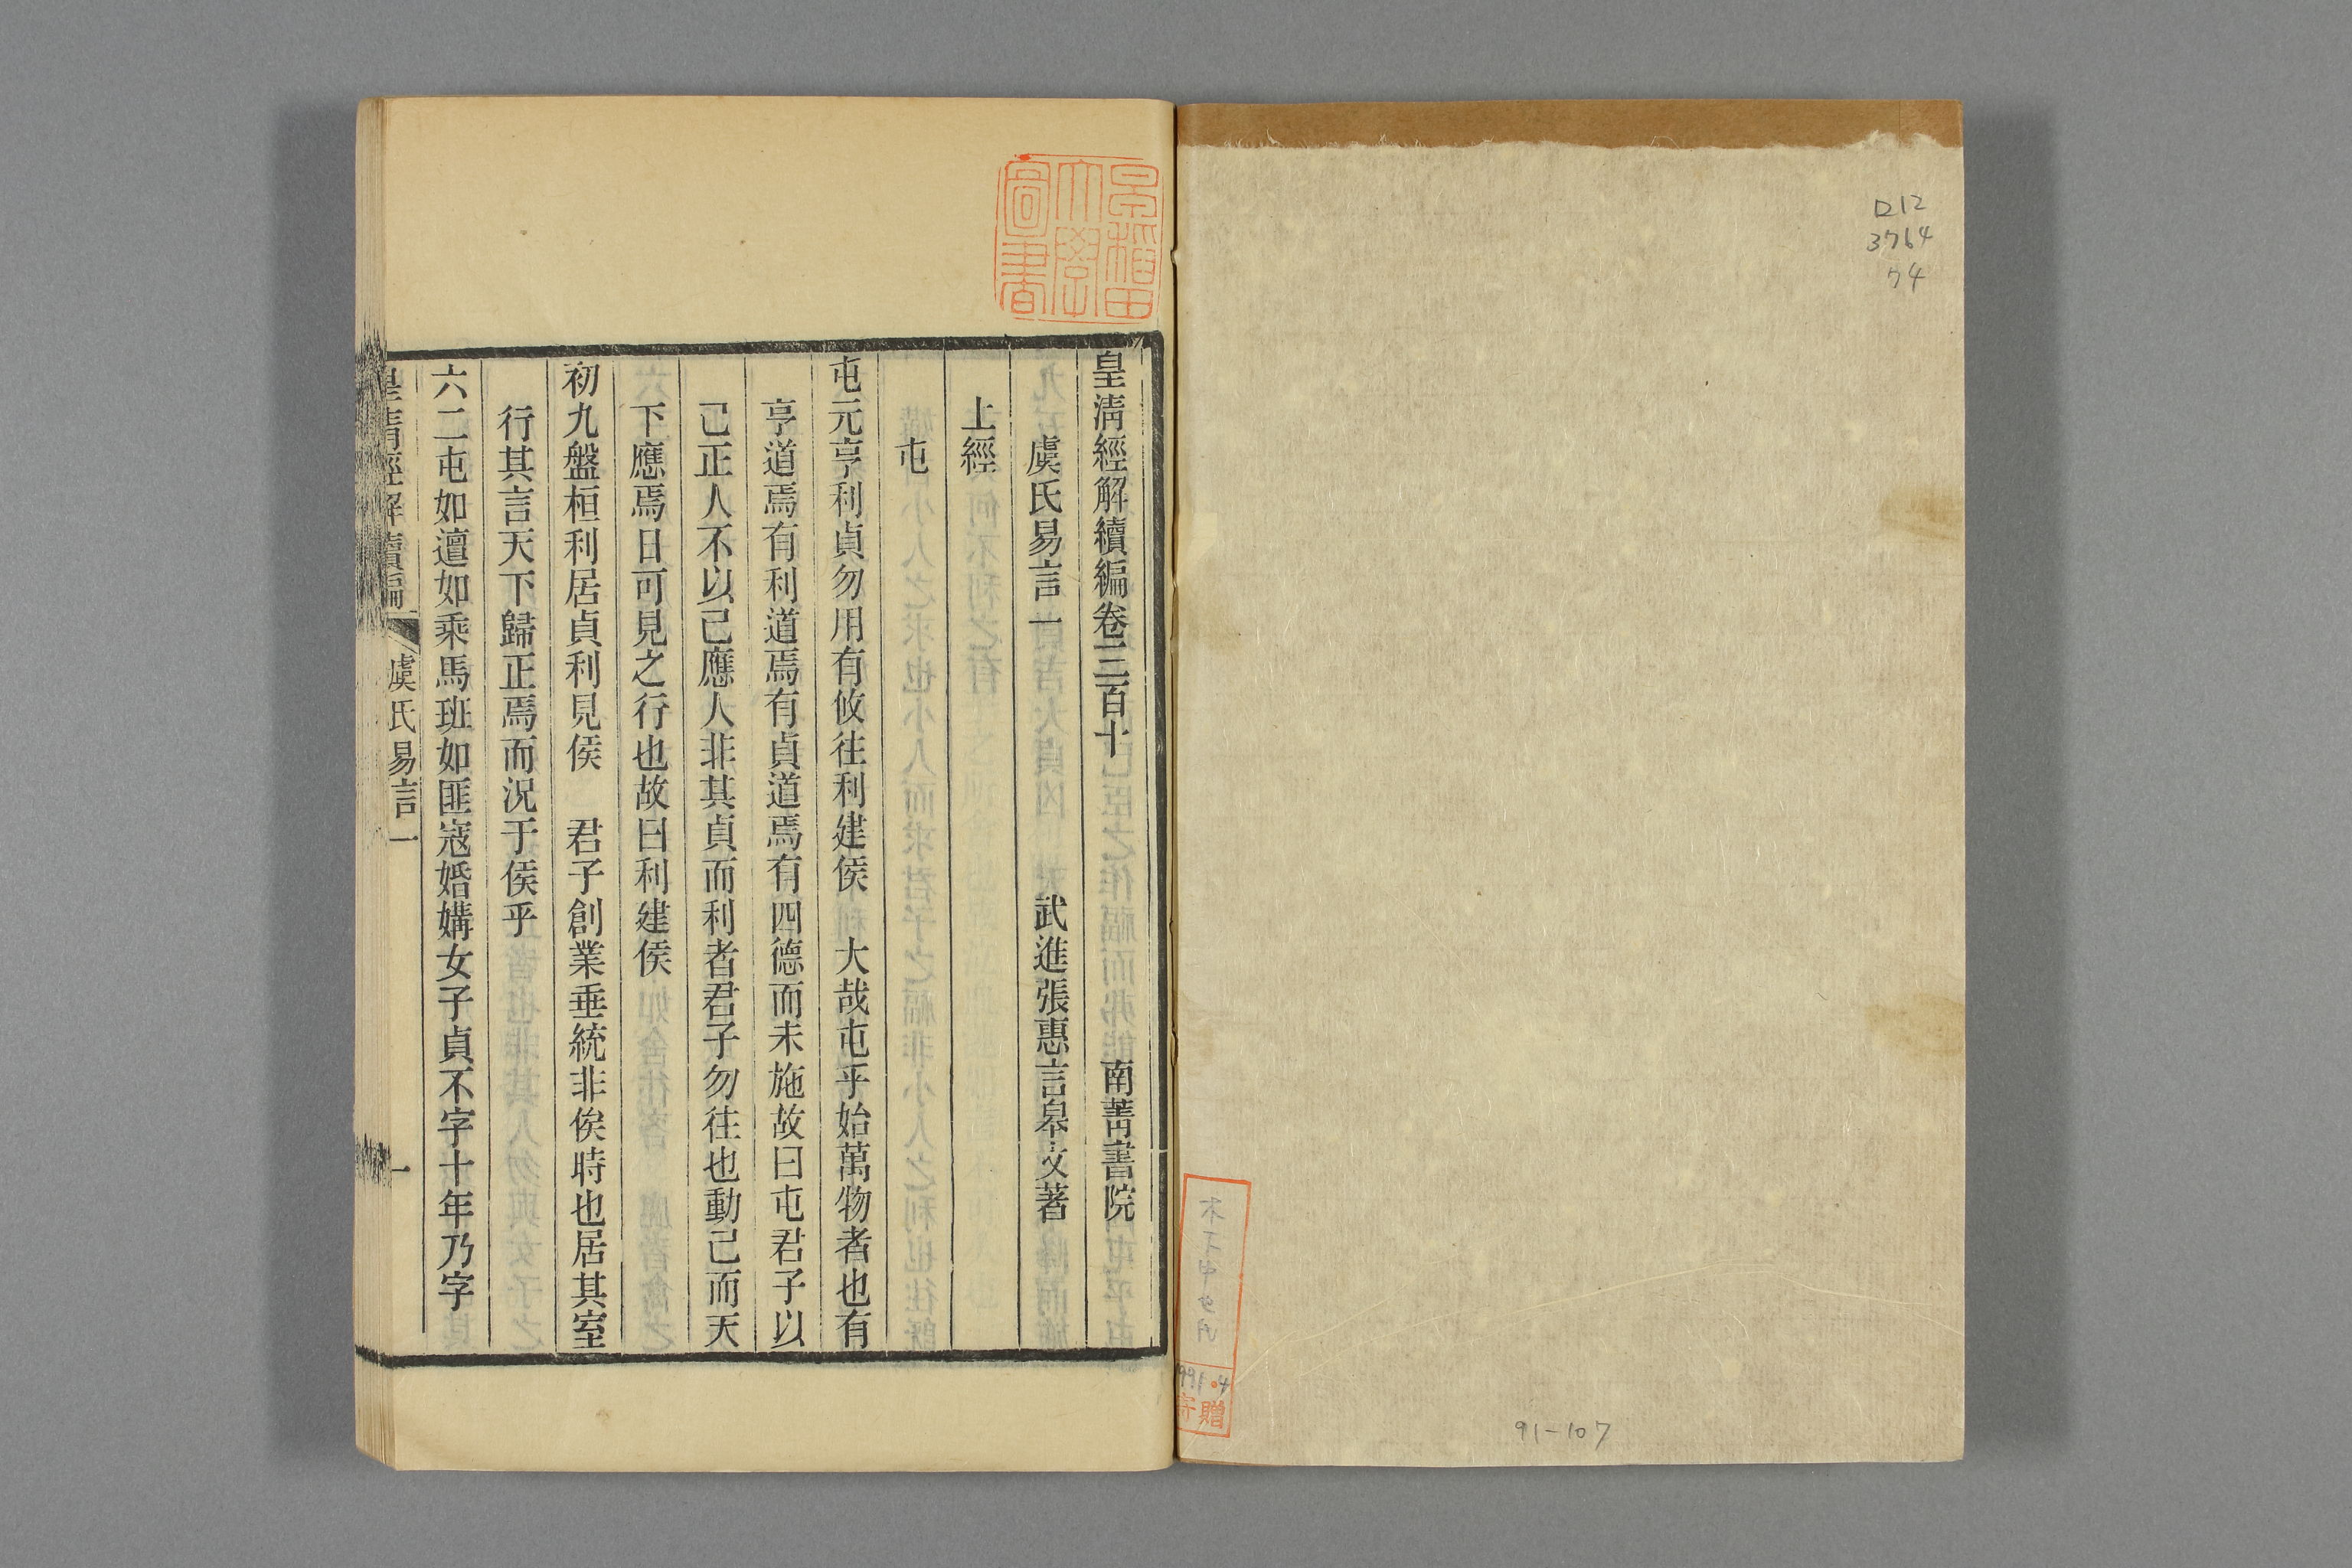 ロ12
3764
74
91-107
寄贈
早稲田
大學
圖書
皇清經解續編卷三百十　南菁書院
虞氏易言一　武進張惠言皋文著
上經
屯
屯元亨利貞勿用有攸往利建侯　大哉屯乎始萬物者也有
亨道焉有利道焉有貞道焉有四德而未施故曰屯君子以
己正人不以己應人非其貞而利者君子勿往也動己而天
下應焉日可見之行也故曰利建侯
初九盤桓利居貞利見侯　君子創業垂統非俟時也居其室
行其言天下歸正焉而況于侯乎
六二屯如邅如乘馬班如匪寇婚媾女子貞不字十年乃字
皇清經解續編　虞氏易言一　一